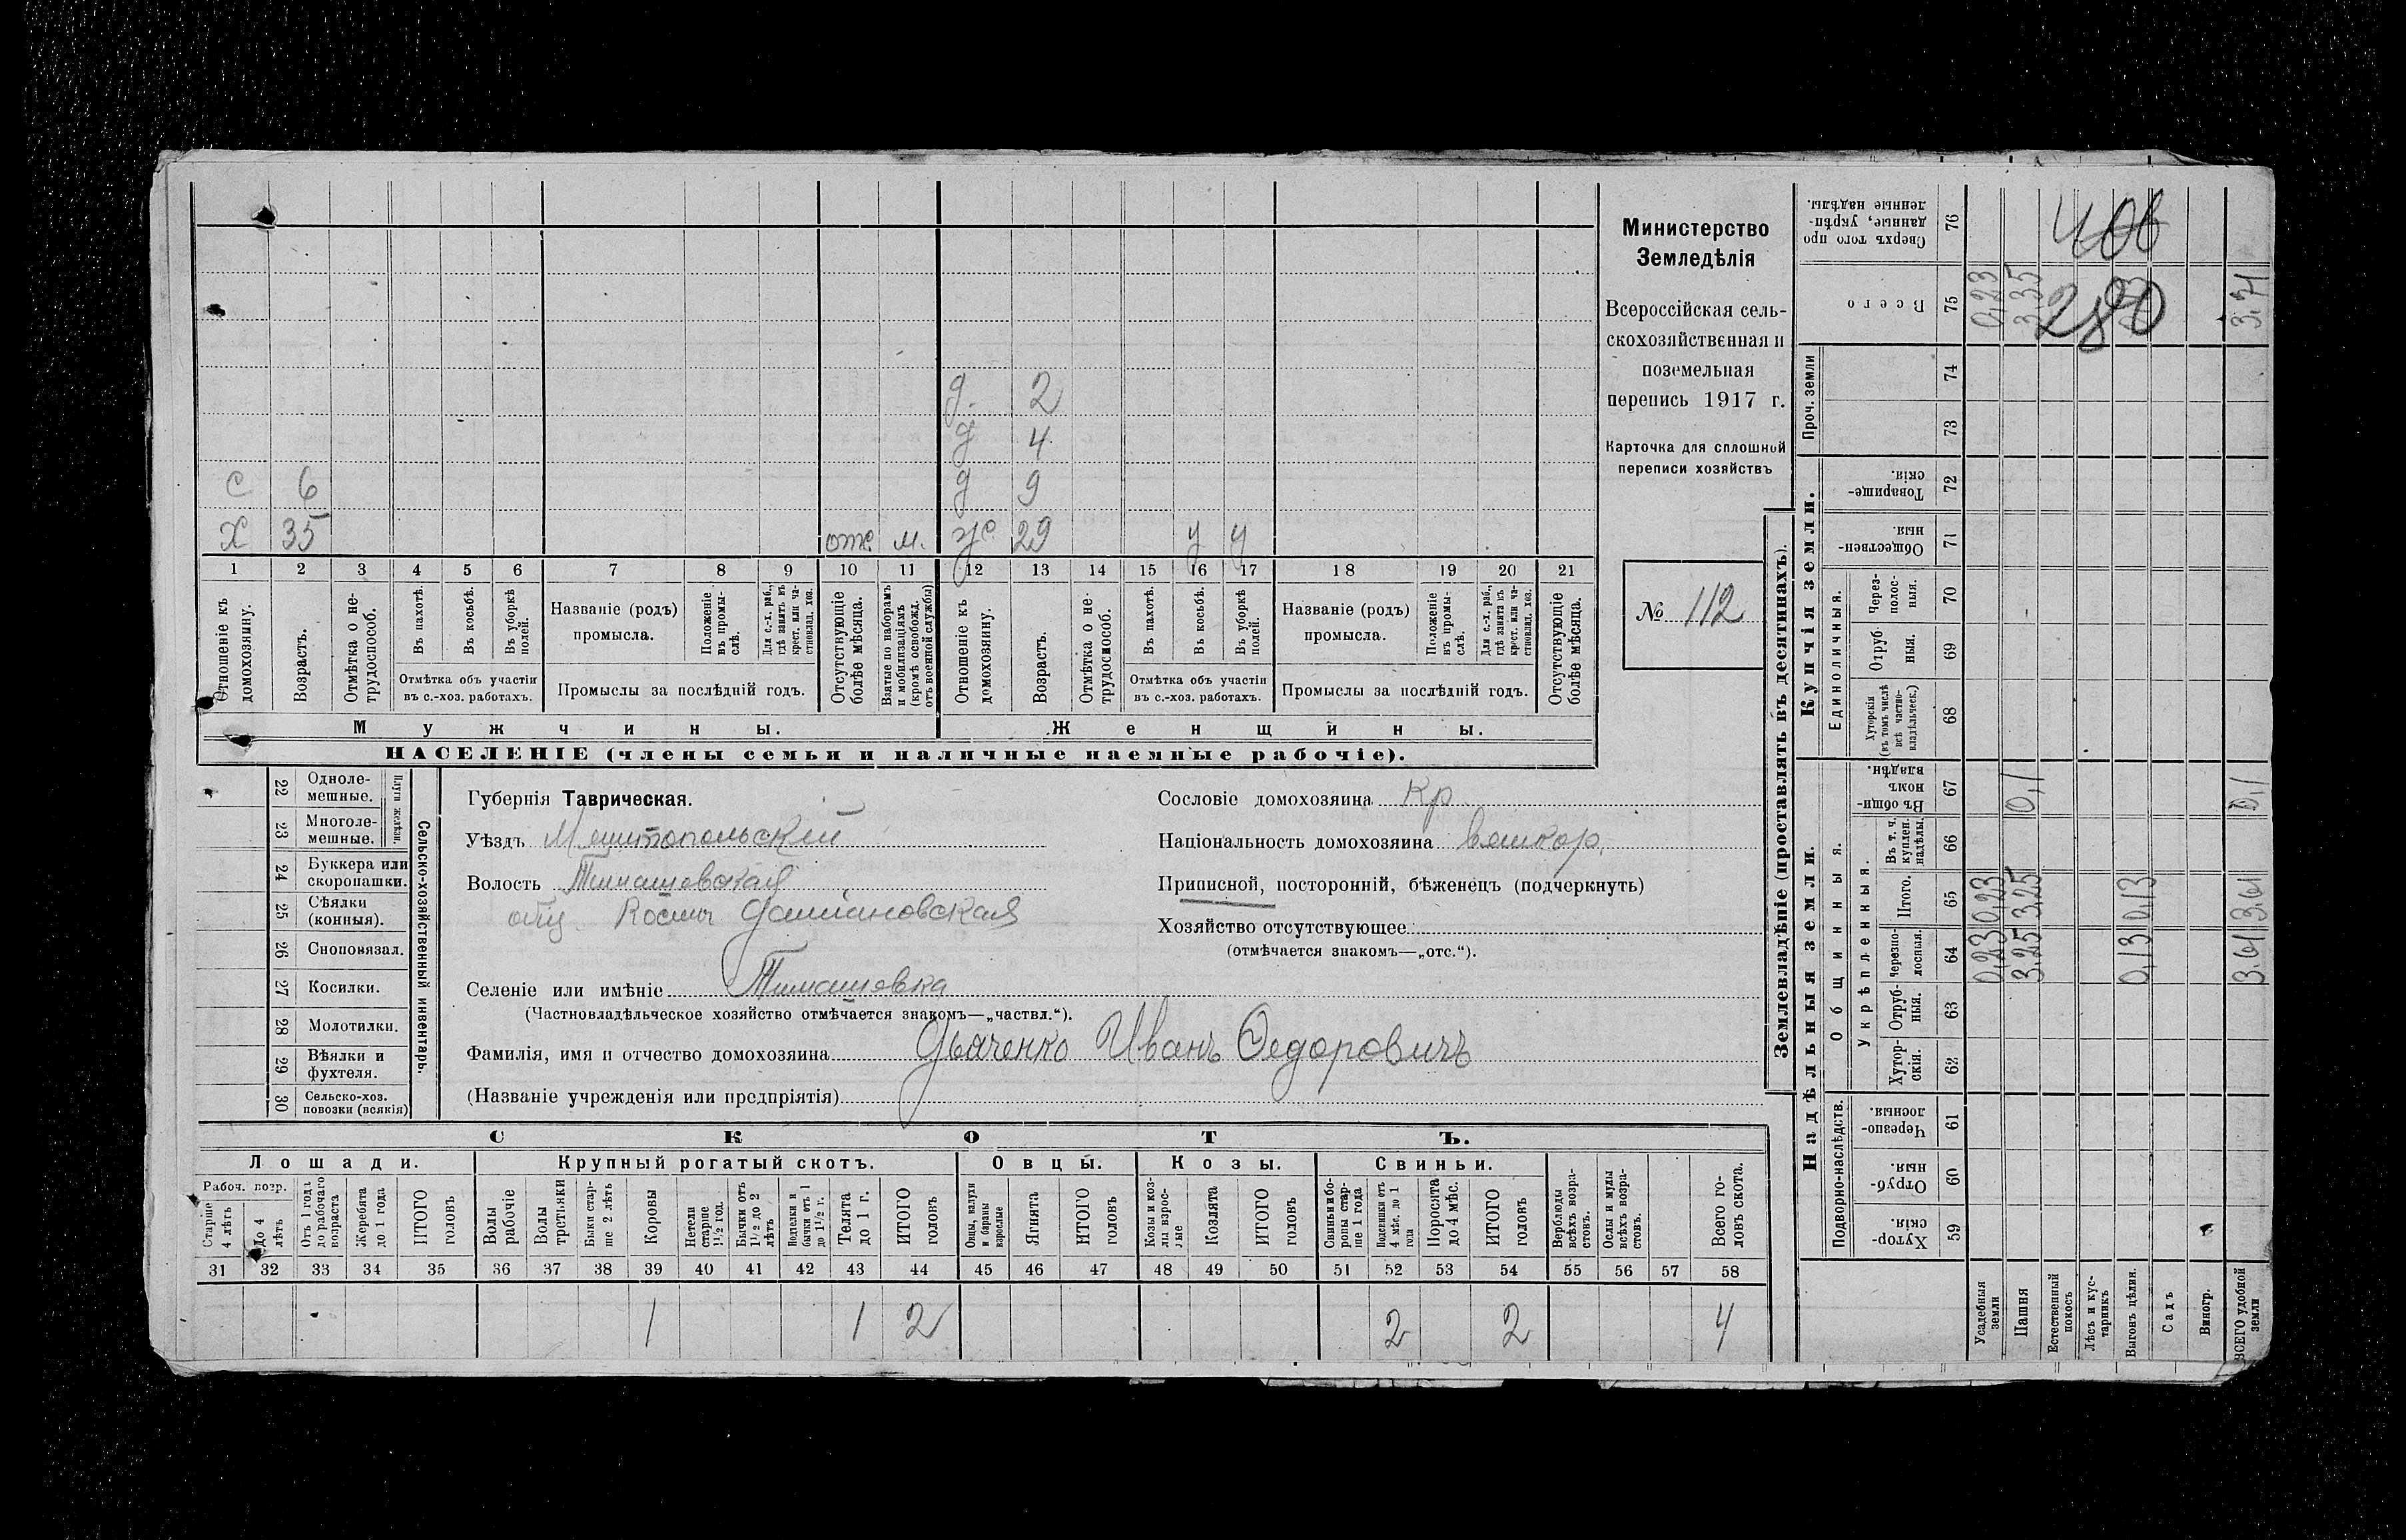 Министерство
Земледѣлія
Всероссійская сель-
скохозяйственная и
поземельная
перепись 1917 г.
Карточка для сплошной
переписи хозяйствъ
№ 112
д. 2
д 4
с 6 д 9
х 35 отс. м. ж 29 у у
1 2 3 4 5 6 7 8 9 10 11 12 13 14 15 16 17 18 19 20 21
Отношеніе къ домохозяину.
Возрастъ.
Отмѣтка о не-трудоспособ.
Въ пахотѣ.
Въ косьбѣ.
Въ уборкѣ полей.
Отмѣтка объ участіи
въ с.-хоз. работахъ.
Названіе (родъ)
промысла.
Положеніе въ промы-слѣ.
Для с.-х. раб., гдѣ занятъ въ крест. или ча-стновлад. хоз.
Промыслы за послѣдній годъ.
Отсутствующіе болѣе мѣсяца.
Взятые по наборамъ и мобилизаціямъ (кромѣ освобожд. отъ военной службы)
Отношеніе къ домохозяину.
Возрастъ.
Отмѣтка о не-трудоспособ.
Въ пахотѣ.
Въ косьбѣ.
Въ уборкѣ полей.
Отмѣтка объ участіи
въ с.-хоз. работахъ.
Названіе (родъ)
промысла.
Положеніе въ промы-слѣ.
Для с.-х. раб., гдѣ занята въ крест. или ча-стновлад. хоз.
Промыслы за послѣдній годъ.
Отсутствующіе болѣе мѣсяца.
Мужчины. Женщины.
НАСЕЛЕНІЕ (члены семьи и наличные наемные рабочіе).
22 Одноле-мешные.
23 Многоле-мешные.
Плуги желѣзн.
24 Буккера или скоропашки.
25 Сѣялки (конныя).
26 Сноповязал.
27 Косилки.
28 Молотилки.
29 Вѣялки и фухтеля.
30 Сельско-хоз. повозки (всякія)
Сельско-хозяйственный инвентарь.
Губернія Таврическая.
Уѣздъ Мелитопольскій
Волость Тимашевская
общ. Космо Даміановская
Селеніе или имѣніе Тимашевка
(Частновладѣльческое хозяйство отмѣчается знакомъ—„частвл.“).
Фамилія, имя и отчество домохозяина Дьяченко Иванъ Ѳедоровичъ
(Названіе учрежденія или предпріятія)
Сословіе домохозяина кр
Національность домохозяина великор.
Приписной, посторонній, бѣженецъ (подчеркнуть)
Хозяйство отсутствующее
(отмѣчается знакомъ—„отс.“).
СКОТЪ.
Лошади. Крупный рогатый скотъ. Овцы. Козы. Свиньи.
Рабоч. возр.
Старше 4 лѣтъ
До 4 лѣтъ
Отъ 1 года до рабочаго возраста
Жеребята до 1 года
ИТОГО головъ
Волы рабочіе
Волы третьяки
Быки стар-ше 2 лѣтъ
Коровы
Нетели старше 1½ год.
Бычки отъ 1½ до 2 лѣтъ
Подтелки и бычки отъ 1 до 1½ г.
Телята до 1 г.
ИТОГО головъ
Овцы, валухи и бараны взрослые
Ягнята
ИТОГО головъ
Козы и коз-лы взрос-лые
Козлята
ИТОГО головъ
Свиньи и бо-ровы стар-ше 1 года
Подсвинки отъ 4 мѣс. до 1 года
Поросята до 4 мѣс.
ИТОГО головъ
Верблюды всѣхъ возра-стовъ.
Ослы и мулы всѣхъ возра-стовъ.
Всего го-ловъ скота.
31 32 33 34 35 36 37 38 39 40 41 42 43 44 45 46 47 48 49 50 51 52 53 54 55 56 57 58
1 1 2 2 2 4
Землевладѣніе (проставлять въ десятинахъ).
Надѣльныя земли.
Купчія земли.
Проч. земли
Подворно-наслѣдств.
Общинныя.
Укрѣпленныя.
Единоличныя.
Сверхъ того про данные, укрѣп-ленные надѣлы. 76
Всего 75 0,23 3,35 3.71
406
280
74
73
Товарище-скія. 72
Обществен-ныя. 71
Через-полос-ныя. 70
Отруб-ныя. 69
Хуторскія (въ томъ числѣ всѣ частно-владѣльческ.) 68
Въ общин-номъ владѣн. 67 0,1 0,1
Въ т. ч. куплен. надѣлы. 66
Итого. 65 0,23 3,25 0,13 3.61
Черезпо-лосныя. 64 0,23 3,25 0,13 3.61
Отруб-ныя. 63
Хутор-скія. 62
Черезпо-лосныя. 61
Отруб-ныя. 60
Хутор-скія. 59
Усадебныя земли
Пашня
Естественный покосъ
Лѣсъ и кус-тарникъ
Выгонъ цѣлин.
Садъ
Виногр.
ВСЕГО удобной земли